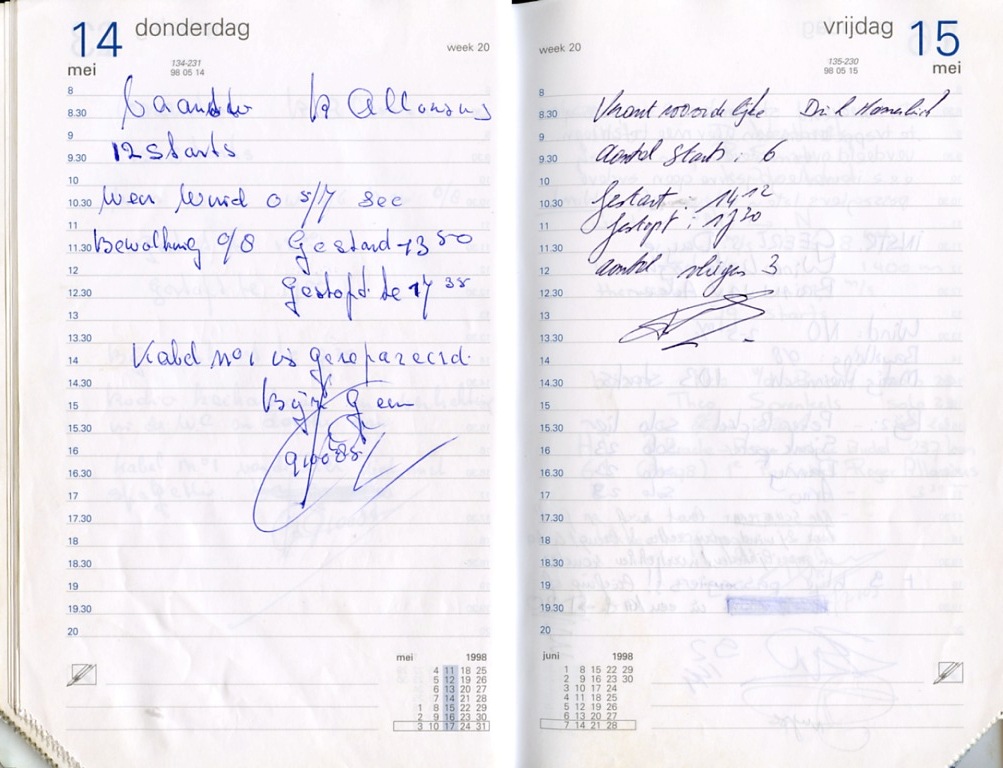 14 donderdag
mei
week 20
134-231
98 05 14
8
8.30
9
9.30
10
10.30
11
11.30
12
12.30
13
13.30
14
14.30
15
15.30
16
16.30
17
17.30
18
18.30
19
19.30
20
12 Starts
Wind 0 5/7 sec
Bewolking 0/8 Gestard 1350
gestopt. te 17 35
Kabel nº1 is gerepareerd.
mei 1998
4 11 18 25
5 12 19 26
6 13 20 27
7 14 21 28
1 8 15 22 29
2 9 16 23 30
3 10 17 24 31
vrijdag 15
mei
week 20
135-230
98 05 15
8
8.30
9
9.30
10
10.30
11
11.30
12
12.30
13
13.30
14
14.30
15
15.30
16
16.30
17
17.30
18
18.30
19
19.30
20
Verantwoordelijke
Aantal starts : 6
gestart : 14,12
gestopt : 1720
aantal vliegers 3
juni 1998
1 8 15 22 29
2 9 16 23 30
3 10 17 24
4 11 18 25
5 12 19 26
6 13 20 27
7 14 21 28